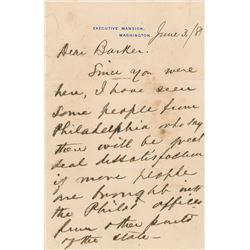 EXECUTIVE MANSION,
WASHINGTON.
June 3/8
Dear Barker.
Since you were
here, I have seen
some people from
Philadelphia who say
there will be great
deal dissatisfaction
if more people
are brought into
the Phila offices
from other parts
of the state—